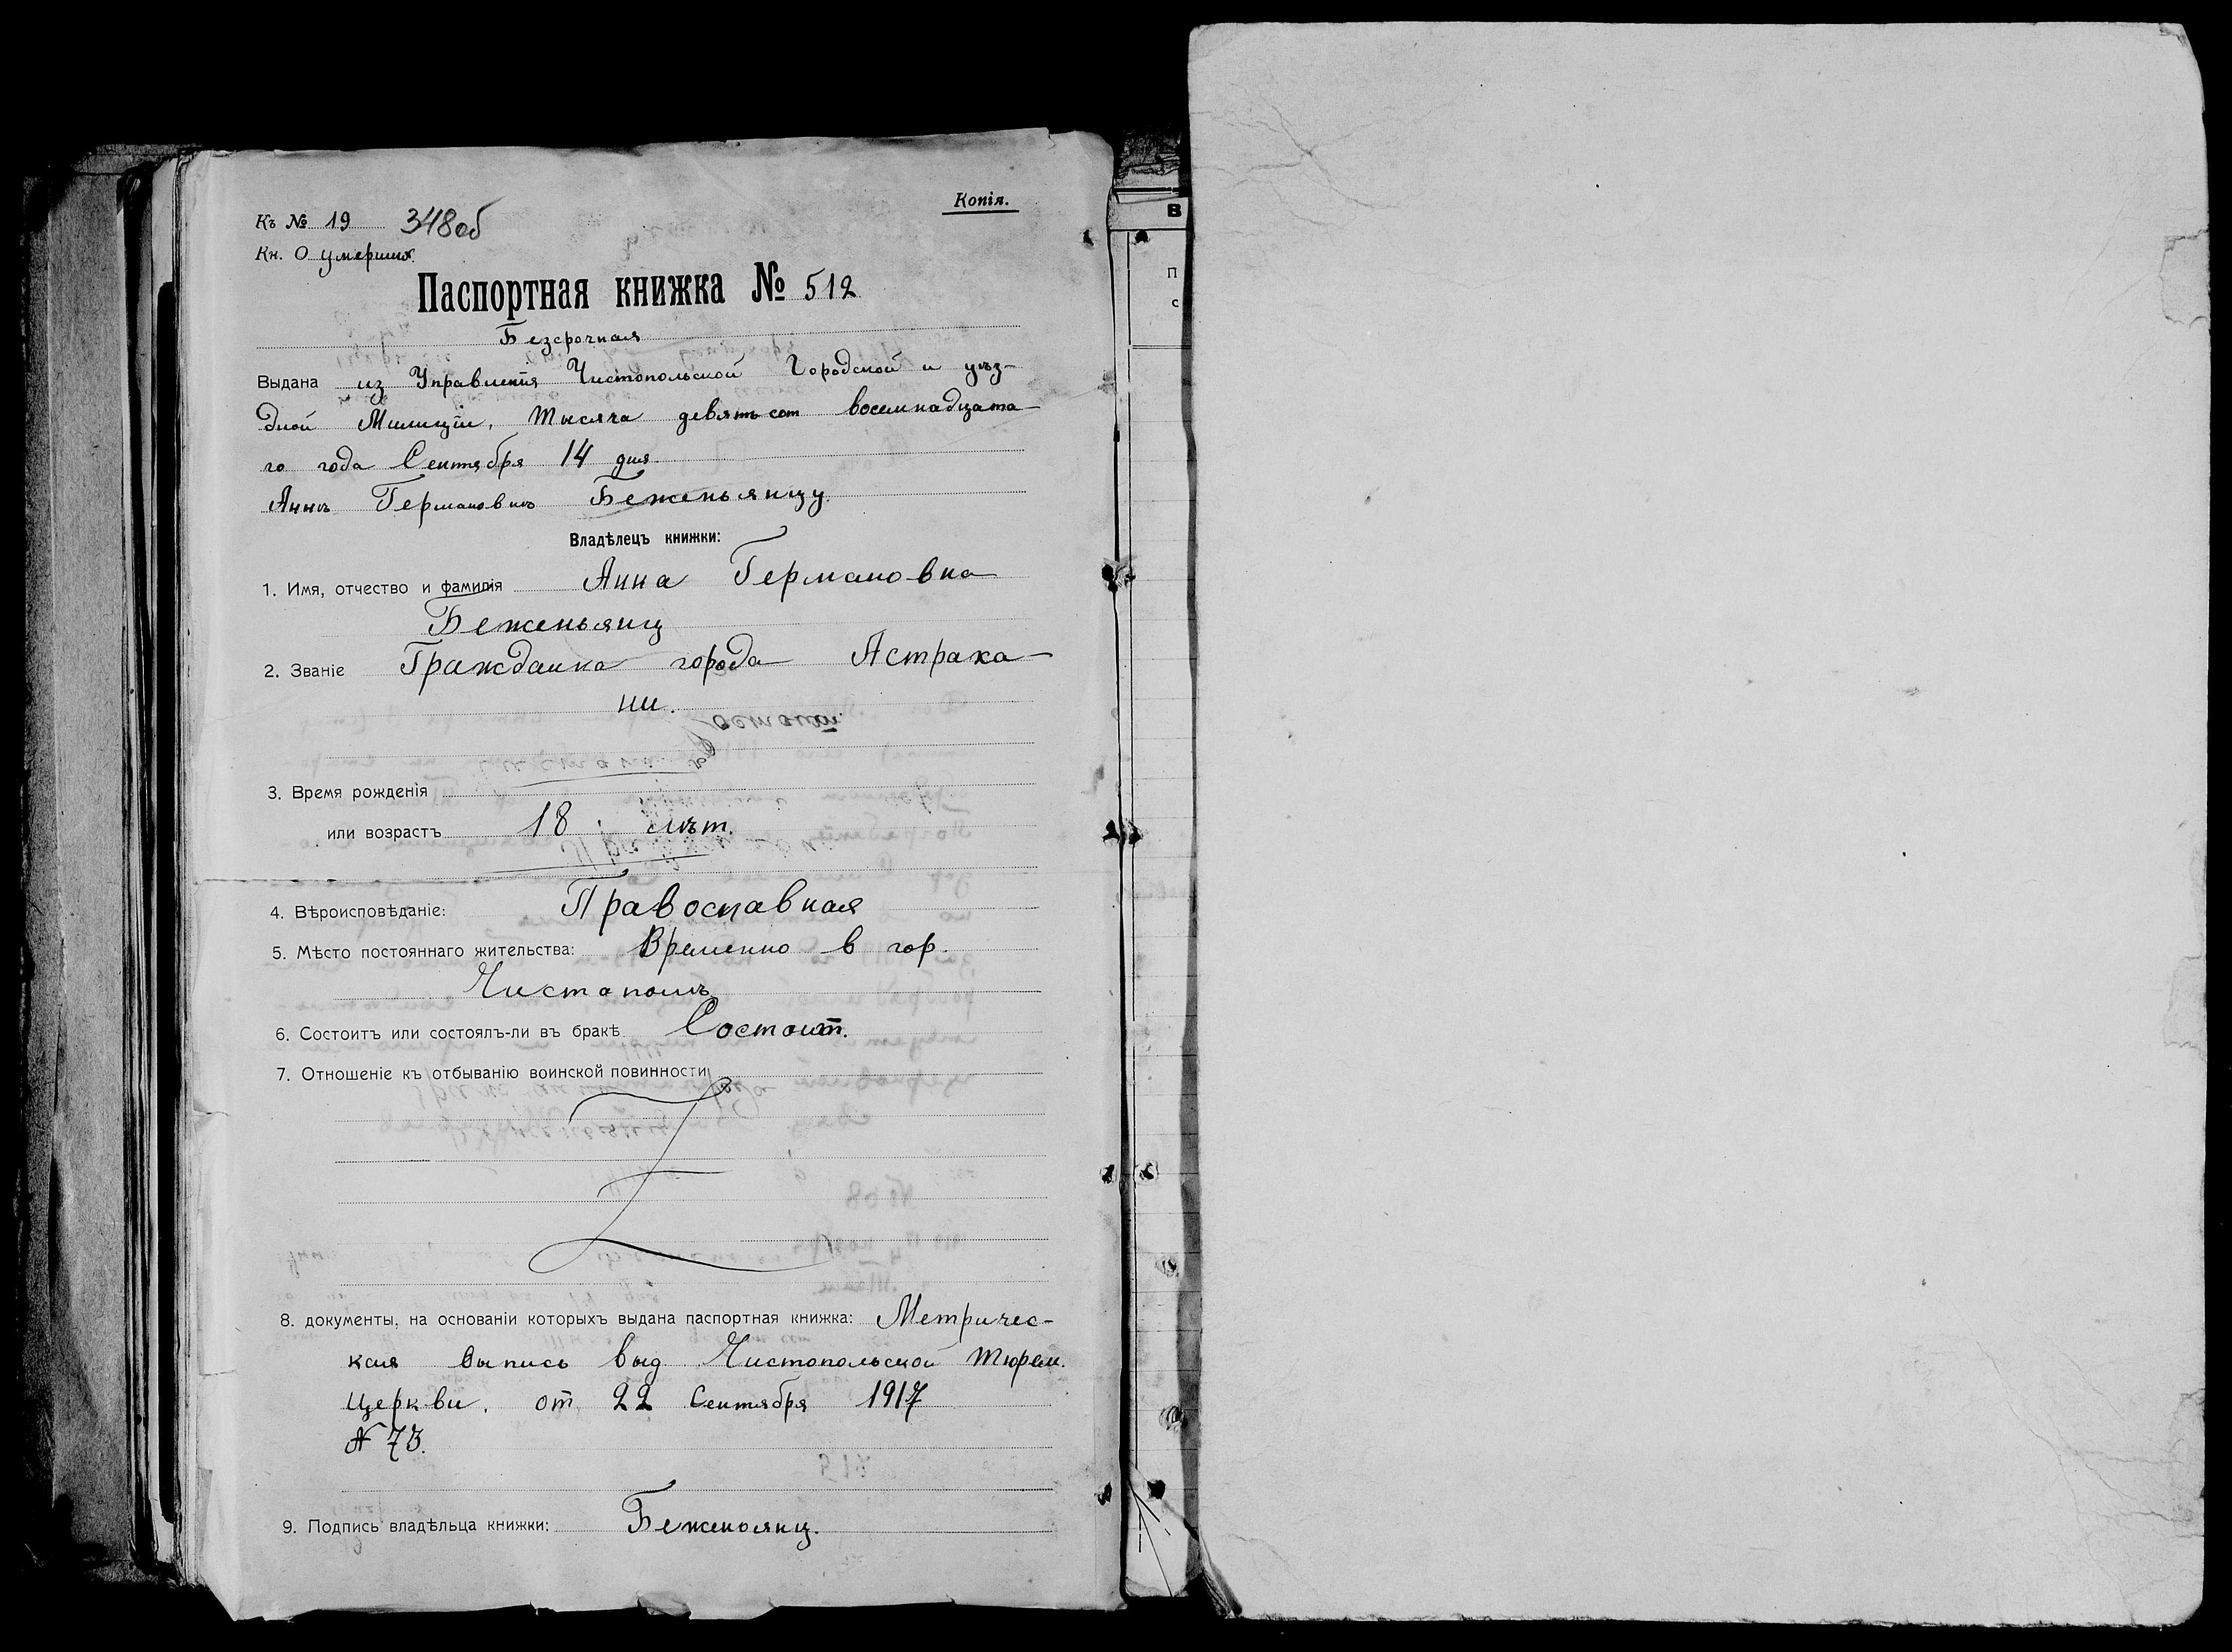 Копія.
Къ № 19 348об
Кн. О умерших.
Паспортная книжка № 512
Безсрочная
Выдана из Управленія Чистопольской Городской и уѣз-
дной Милиціи, тысяча девятьсот восемнадцата-
го года Сентября 14 дня.
Аннѣ Германовнѣ Беженьянцу.
Владѣлецъ книжки:
1. Имя, отчество и фамилія Анна Германовна
Беженьянц
2. Званіе Гражданка города Астраха-
ни.
3. Время рожденія
или возрастъ 18 лѣт.
4. Вѣроисповѣданіе: Православная
5. Мѣсто постояннаго жительства: Временно в гор.
Чистополѣ
6. Состоитъ или состоялъ-ли въ бракѣ Состоит.
7. Отношеніе къ отбыванію воинской повинности
8. документы, на основаніи которыхъ выдана паспортная книжка: Метричес-
кая выпись выд Чистопольской тюрем.
церкви, от 22 Сентября 1917
№ 73.
9. Подпись владѣльца книжки: Беженьянц.
В
П
с